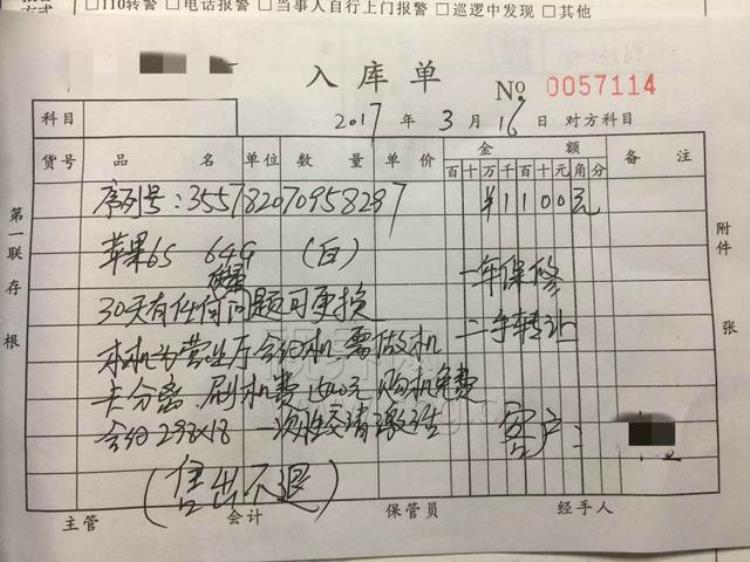 □110转警 □电话报警 □当事人自行上门报警 □巡逻中发现 □其他
入库单
№ 0057114
科目
2017 年 3 月 16 日 对方科目
货号 品名 单位 数量 单价 金额 备注
百十万千百十元角分
序列号:355782070958287 ¥1100元
苹果6S 64G (白) 一年保修
质量
30天有任何问题可更换 二手转让
本机为营业厅合约机,需做机
卡分离,刷机费1500元 购机免费
合约298×18 一次性交清邀结 客户:
(售出不退)
主管 会计 保管员 经手人
第一联存根
附件 张